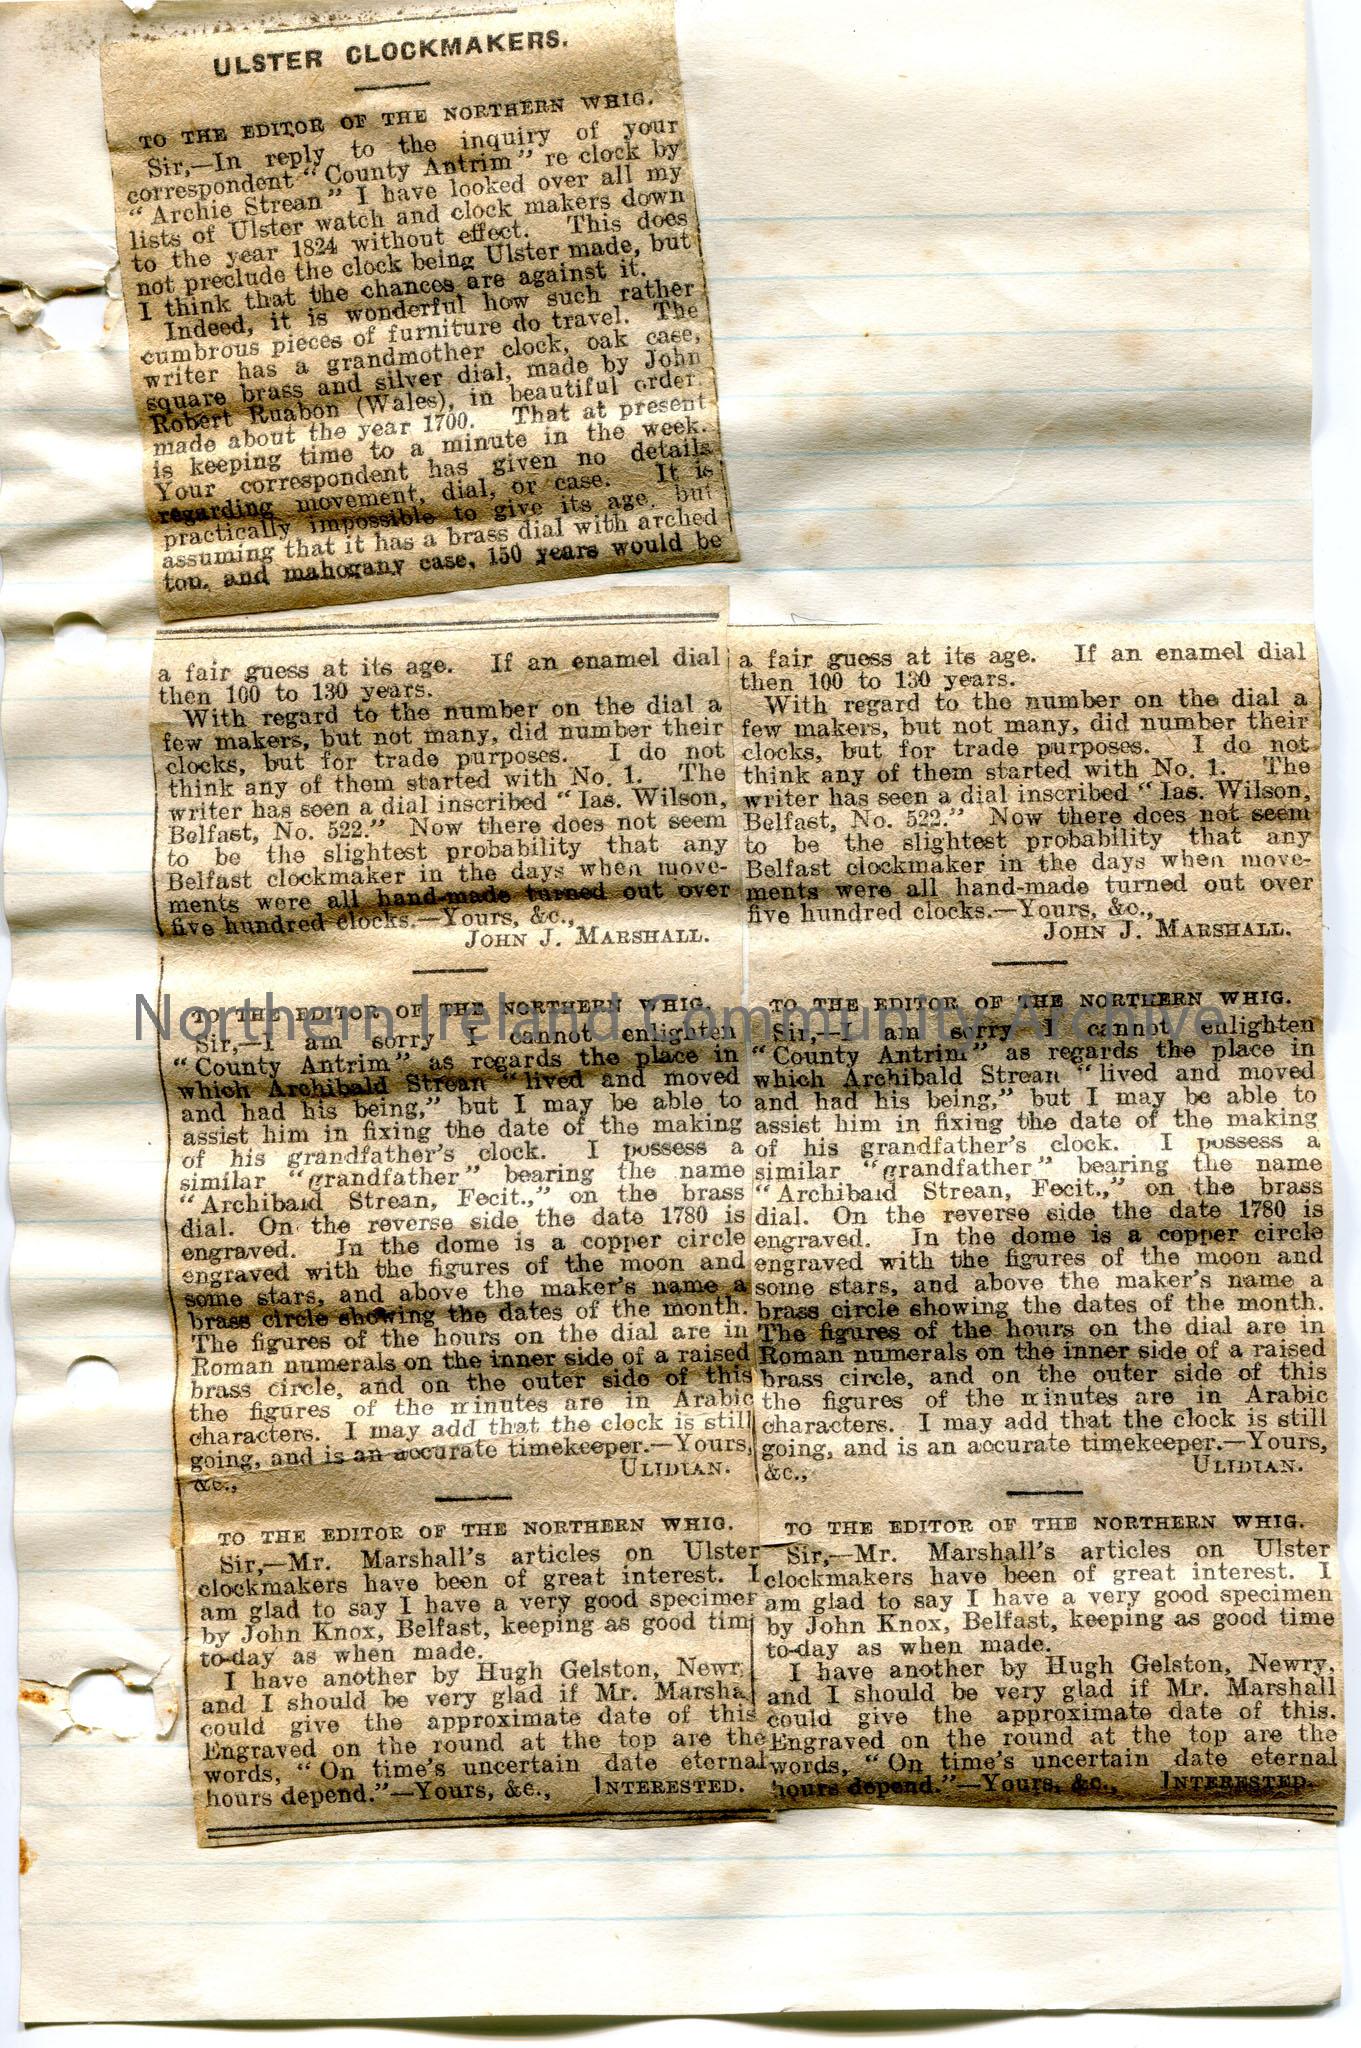 ULSTER CLOCKMAKERS.
TO THE EDITOR OF THE NORTHERN WHIG.
Sir,—In reply to the inquiry of your
correspondent "County Antrim" re clock by
"Archie Strean" I have looked over all my
lists of Ulster watch and clock makers down
to the year 1824 without effect. This does
not preclude the clock being Ulster made, but
I think that the chances are against it.
Indeed, it is wonderful how such rather
cumbrous pieces of furniture do travel. The
writer has a grandmother clock, oak case,
square brass and silver dial, made by John
Robert Ruabon (Wales), in beautiful order,
made about the year 1700. That at present
is keeping time to a minute in the week.
Your correspondent has given no details
regarding movement, dial, or case. It is
practically impossible to give its age, but
assuming that it has a brass dial with arched
top, and mahogany case, 150 years would be
a fair guess at its age. If an enamel dial
then 100 to 130 years.
With regard to the number on the dial a
few makers, but not many, did number their
clocks, but for trade purposes. I do not
think any of them started with No. 1. The
writer has seen a dial inscribed "Ias. Wilson,
Belfast, No. 522." Now there does not seem
to be the slightest probability that any
Belfast clockmaker in the days when move-
ments were all hand-made turned out over
five hundred clocks.—Yours, &c.,
JOHN J. MARSHALL.
TO THE EDITOR OF THE NORTHERN WHIG.
Sir,—I am sorry I cannot enlighten
"County Antrim" as regards the place in
which Archibald Strean "lived and moved
and had his being," but I may be able to
assist him in fixing the date of the making
of his grandfather's clock. I possess a
similar "grandfather" bearing the name
"Archibald Strean, Fecit.," on the brass
dial. On the reverse side the date 1780 is
engraved. In the dome is a copper circle
engraved with the figures of the moon and
some stars, and above the maker's name a
brass circle showing the dates of the month.
The figures of the hours on the dial are in
Roman numerals on the inner side of a raised
brass circle, and on the outer side of this
the figures of the minutes are in Arabic
characters. I may add that the clock is still
going, and is an accurate timekeeper.—Yours,
&c., ULIDIAN.
TO THE EDITOR OF THE NORTHERN WHIG.
Sir,—Mr. Marshall's articles on Ulster
clockmakers have been of great interest. I
am glad to say I have a very good specimen
by John Knox, Belfast, keeping as good tim
to-day as when made.
I have another by Hugh Gelston, Newr
and I should be very glad if Mr. Marsha
could give the approximate date of this
Engraved on the round at the top are the
words, "On time's uncertain date eternal
hours depend."—Yours, &c., INTERESTED.
a fair guess at its age. If an enamel dial
then 100 to 130 years.
With regard to the number on the dial a
few makers, but not many, did number their
clocks, but for trade purposes. I do not
think any of them started with No. 1. The
writer has seen a dial inscribed "Ias. Wilson,
Belfast, No. 522." Now there does not seem
to be the slightest probability that any
Belfast clockmaker in the days when move-
ments were all hand-made turned out over
five hundred clocks.—Yours, &c.,
JOHN J. MARSHALL.
TO THE EDITOR OF THE NORTHERN WHIG.
Sir,—I am sorry I cannot enlighten
"County Antrim" as regards the place in
which Archibald Strean "lived and moved
and had his being," but I may be able to
assist him in fixing the date of the making
of his grandfather's clock. I possess a
similar "grandfather" bearing the name
"Archibald Strean, Fecit.," on the brass
dial. On the reverse side the date 1780 is
engraved. In the dome is a copper circle
engraved with the figures of the moon and
some stars, and above the maker's name a
brass circle showing the dates of the month.
The figures of the hours on the dial are in
Roman numerals on the inner side of a raised
brass circle, and on the outer side of this
the figures of the minutes are in Arabic
characters. I may add that the clock is still
going, and is an accurate timekeeper.—Yours,
&c., ULIDIAN.
TO THE EDITOR OF THE NORTHERN WHIG.
Sir,—Mr. Marshall's articles on Ulster
clockmakers have been of great interest. I
am glad to say I have a very good specimen
by John Knox, Belfast, keeping as good time
to-day as when made.
I have another by Hugh Gelston, Newry,
and I should be very glad if Mr. Marshall
could give the approximate date of this.
Engraved on the round at the top are the
words, "On time's uncertain date eternal
hours depend."—Yours, &c., INTERESTED.
Northern Ireland Community Archive